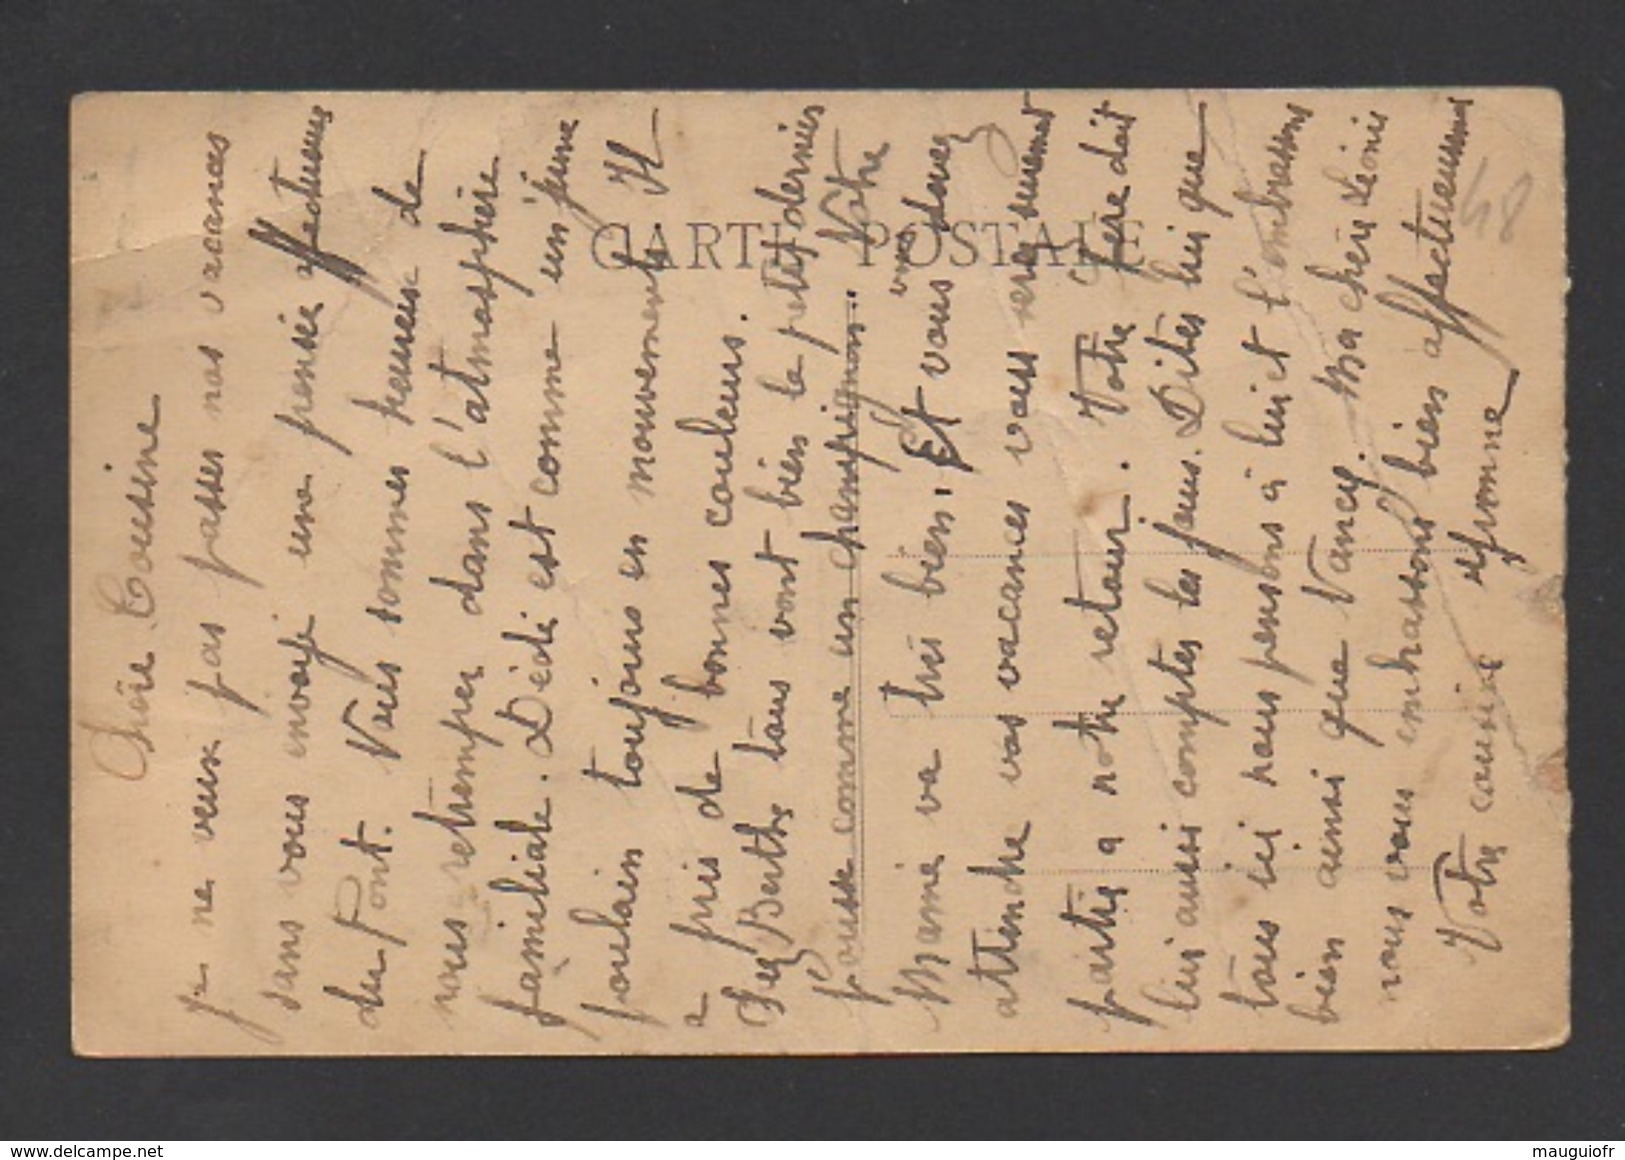 Chère Cousine
je ne veux pas passer nos vacances
sans vous envoyer une pensée affectueuse
du Pont. Nous sommes heureux de
nous retremper dans l'atmosphère
familiale. Dédé est comme un jeune
poulain toujours en mouvement. Il
a pris de bonnes couleurs.
Les Berths tous vont bien le petit dernier
pousse comme un champignon. Notre
Mamie va très bien. Et vous
attendre vos vacances vous sera surement
partie a notre retour. Votre père doit
lui aussi compter les jours. Dites lui que
tous ici nous pensons à lui et l'embrassons
bien ainsi que Nancy. Ma chère Léonie
nous vous embrassons bien affectueusement
Votre cousine Yvonne
CARTE POSTALE
48
delcampe.net
mauguiofr